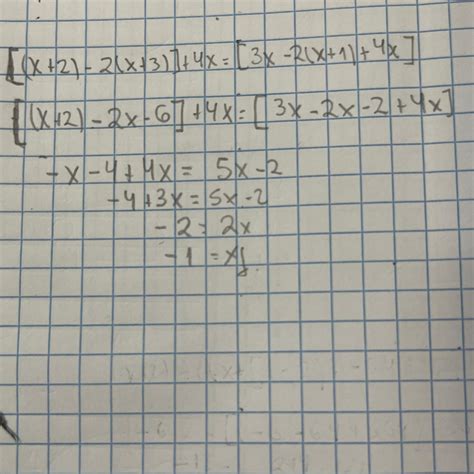 [(x+2)-2(x+3)]+4x=[3x-2(x+1)+4x]
[(x+2)-2x-6]+4x=[3x-2x-2+4x]
-x-4+4x=5x-2
-4+3x=5x-2
-2=2x
-1=x